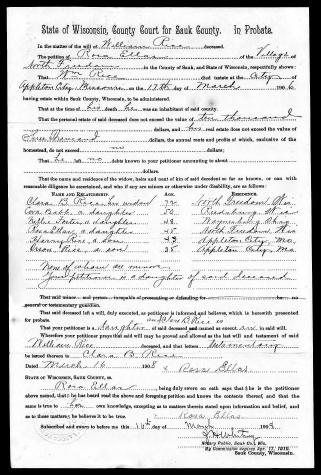 State of Wisconsin, County Court for Sauk County. In Probate.
In the matter of the will of William Rice deceased.
The petition of Rosa Ellas of the Village of
North Freedom in the County of Sauk, and State of Wisconsin, respectfully shows:
That Wm Rice died testate at the City of
Appleton City Missouri on the 17th day of March 190
having estate within Sauk County, Wisconsin, to be administered.
That at the time of his death he was an inhabitant of said county.
That the personal estate of said deceased does not exceed the value of ten thousand
dollars, and his real estate does not exceed the value of
thousand dollars, the annual rents and profits of which, exclusive of the
homestead, do not exceed no dollars.
That he left no debts known to your petitioner amounting to about
dollars.
That the names and residence of the widow, heirs and next of kin of said decedent so far as known, or can with
reasonable diligence be ascertained, and who if any are minors or otherwise under disability, are as follows:
NAMES AND RELATIONSHIP. AGE. RESIDENCE.
Clara B. Rice, his widow 72 North Freedom Wis
Cora a daughter 50 Reedsburg Wis
a daughter 48
Rosa Ellas, a daughter 45 North Freedom Wis
Harvey Rice, a son 43 Appleton City, Mo.
Rice, a son 35 Appleton City Mo
None of whom are minors
Your petitioner is a daughter of said deceased
That said minor person incapable of presenting or defending for
or general or testamentary guardian.
That said deceased left a will, duly executed, as petitioner is informed and believes, which is herewith presented
for probate.
That your petitioner is a daughter of said deceased and named as in said will.
Wherefore your petitioner prays that said will may be proved and allowed as the last will and testament of said
William Rice deceased, and that letters testamentary
be issued thereon to Clara B. Rice
Dated March 16 190 Rosa Ellas
STATE OF WISCONSIN, SAUK COUNTY, ss.
Rosa Ellas being duly sworn on oath says that she is the petitioner
above named, that she has heard read the above and foregoing petition and knows the contents thereof, and that the
same is true to her own knowledge, excepting as to matters therein stated upon information and belief, and
as to those matters, she believes it to be true. Rosa Ellas
Subscribed and sworn to before me this 16th day of March 190
Notary Public, Sauk Co. Wis.
My Commission expires
Sauk County, Wisconsin.